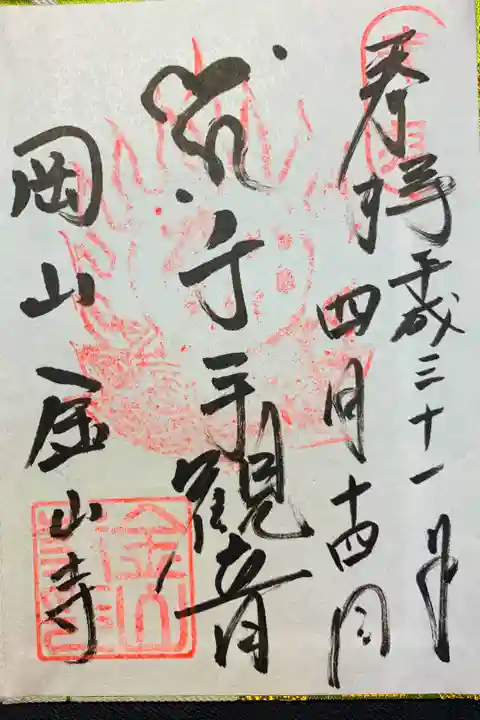 奉拝 平成三十一年
四月十四日
千手観音
岡山 金山寺
金山